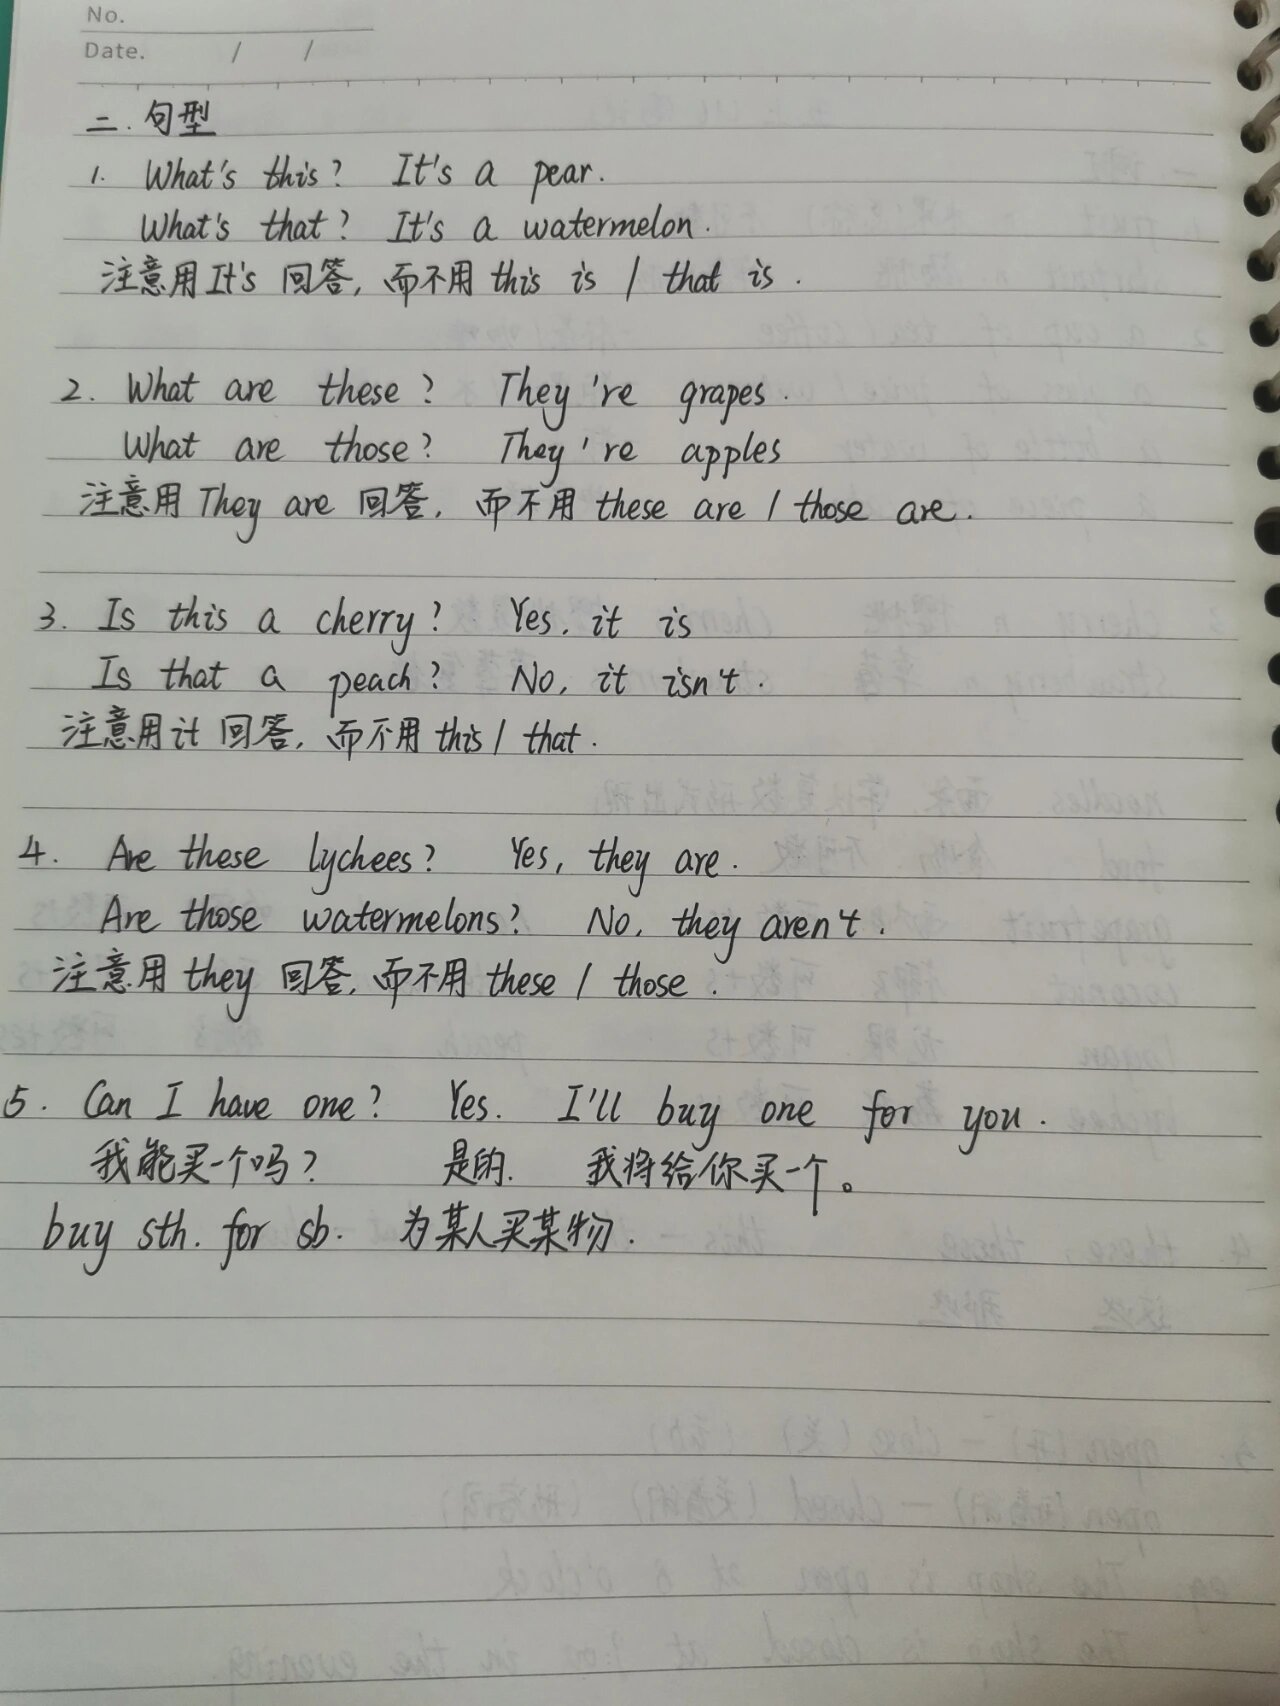 No.
Date. / /
二. 句型
1. What's this? It's a pear.
What's that? It's a watermelon.
注意用It's 回答, 而不用 this is / that is.
2. What are these? They're grapes.
What are those? They're apples
注意用 They are 回答, 而不用 these are / those are.
3. Is this a cherry? Yes, it is
Is that a peach? No, it isn't.
注意用it 回答, 而不用 this / that.
4. Are these lychees? Yes, they are.
Are those watermelons? No, they aren't.
注意用 they 回答, 而不用 these / those.
5. Can I have one? Yes. I'll buy one for you.
我能买一个吗? 是的. 我将给你买一个。
buy sth. for sb. 为某人买某物.